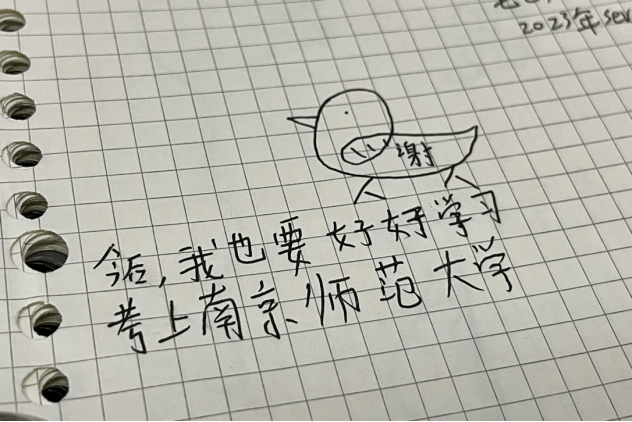 2023年sev
谢
今后,我也要好好学习
考上南京师范大学